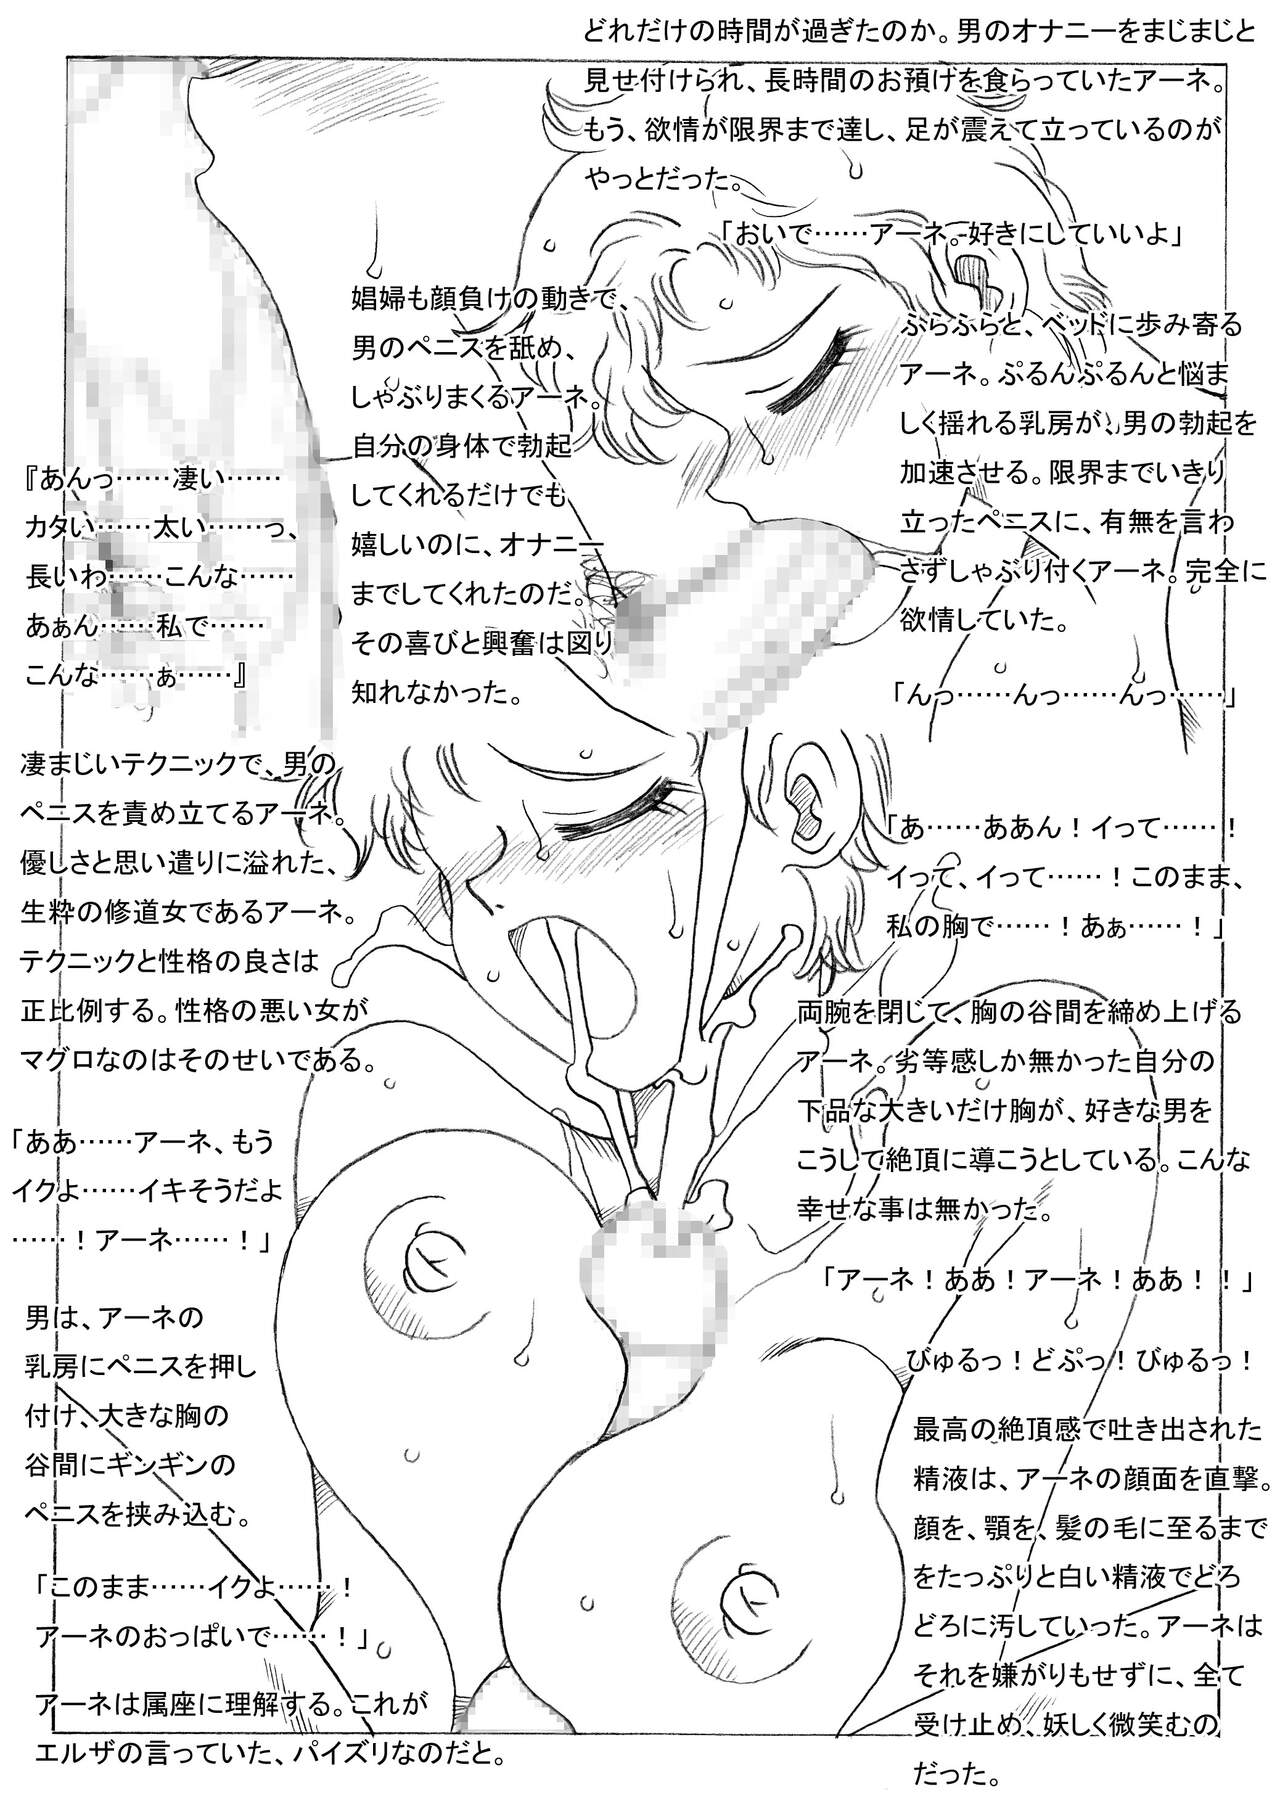 どれだけの時間が過ぎたのか。男のオナニーをまじまじと
見せ付けられ、長時間のお預けを食らっていたアーネ。
もう、欲情が限界まで達し、足が震えて立っているのが
やっとだった。
「おいで……アーネ。好きにしていいよ」
ふらふらと、ベッドに歩み寄る
アーネ。ぷるんぷるんと悩ま
しく揺れる乳房が、男の勃起を
加速させる。限界までいきり
立ったペニスに、有無を言わ
さずしゃぶり付くアーネ。完全に
欲情していた。
「んっ……んっ……んっ……」
娼婦も顔負けの動きで、
男のペニスを舐め、
しゃぶりまくるアーネ。
自分の身体で勃起
してくれるだけでも
嬉しいのに、オナニー
までしてくれたのだ。
その喜びと興奮は図り
知れなかった。
『あんっ……凄い……
カタい……太い……っ、
長いわ……こんな……
あぁん……私で……
こんな……ぁ……』
凄まじいテクニックで、男の
ペニスを責め立てるアーネ。
優しさと思い遣りに溢れた、
生粋の修道女であるアーネ。
テクニックと性格の良さは
正比例する。性格の悪い女が
マグロなのはそのせいである。
「ああ……アーネ、もう
イクよ……イキそうだよ
……！アーネ……！」
男は、アーネの
乳房にペニスを押し
付け、大きな胸の
谷間にギンギンの
ペニスを挟み込む。
「このまま……イクよ……！
アーネのおっぱいで……！」
アーネは属座に理解する。これが
エルザの言っていた、パイズリなのだと。
「あ……ああん！イって……！
イって、イって……！このまま、
私の胸で……！あぁ……！」
両腕を閉じて、胸の谷間を締め上げる
アーネ。劣等感しか無かった自分の
下品な大きいだけ胸が、好きな男を
こうして絶頂に導こうとしている。こんな
幸せな事は無かった。
「アーネ！ああ！アーネ！ああ！！」
びゅるっ！どぷっ！びゅるっ！
最高の絶頂感で吐き出された
精液は、アーネの顔面を直撃。
顔を、顎を、髪の毛に至るまで
をたっぷりと白い精液でどろ
どろに汚していった。アーネは
それを嫌がりもせずに、全て
受け止め、妖しく微笑むの
だった。